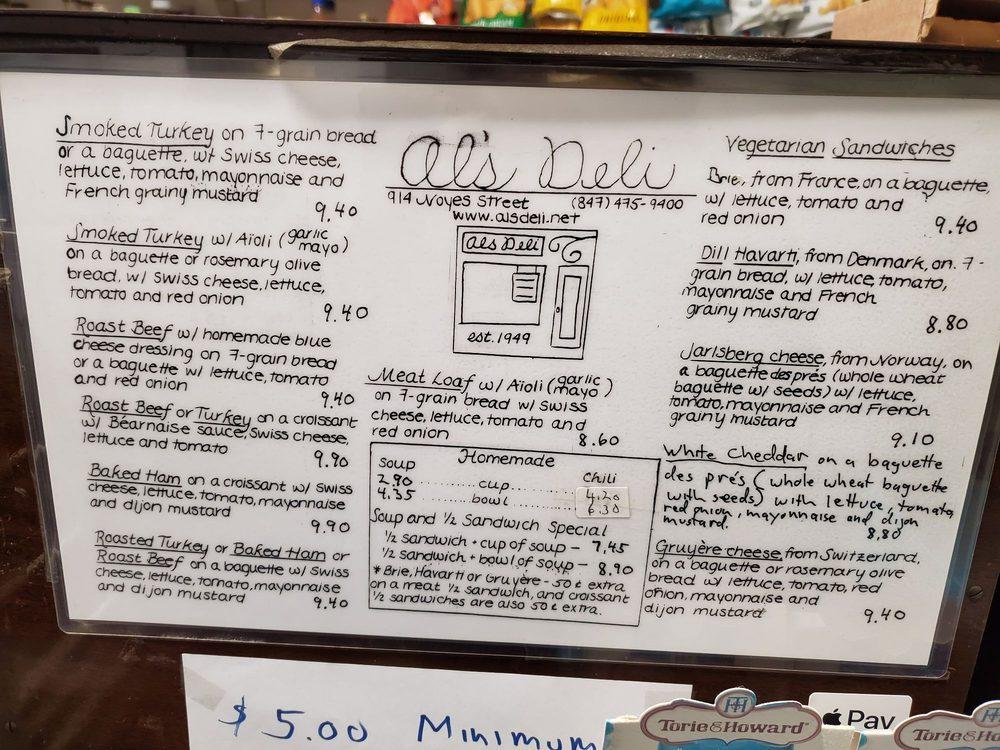 Smoked Turkey on 7-grain bread
or a baguette, w/ Swiss cheese,
lettuce, tomato, mayonnaise and
French grainy mustard
9.40
Smoked Turkey w/ Aïoli (garlic mayo)
on a baguette or rosemary olive
bread, w/ Swiss cheese, lettuce,
tomato and red onion
9.40
Roast Beef w/ homemade blue
cheese dressing on 7-grain bread
or a baguette w/ lettuce, tomato
and red onion
9.40
Roast Beef or Turkey on a croissant
w/ Béarnaise sauce, Swiss cheese,
lettuce and tomato
9.90
Baked Ham on a croissant w/ Swiss
cheese, lettuce, tomato, mayonnaise
and dijon mustard
9.90
Roasted Turkey or Baked Ham or
Roast Beef on a baguette w/ Swiss
cheese, lettuce, tomato, mayonnaise
and dijon mustard
9.40
Al's Deli
914 Noyes Street (847) 475-9400
www.alsdeli.net
Al's Deli
est. 1949
Meat Loaf w/ Aïoli (garlic mayo)
on 7-grain bread w/ Swiss
cheese, lettuce, tomato and
red onion
8.60
Homemade
Soup Chili
2.90 ........ cup ........ 4.20
4.35 ........ bowl ........ 6.30
Soup and 1/2 Sandwich Special
1/2 sandwich + cup of soup - 7.45
1/2 sandwich + bowl of soup - 8.90
* Brie, Havarti or Gruyère - 50¢ extra
on a meat 1/2 sandwich, and croissant
1/2 sandwiches are also 50¢ extra.
Vegetarian Sandwiches
Brie, from France, on a baguette,
w/ lettuce, tomato and
red onion
9.40
Dill Havarti, from Denmark, on 7-
grain bread, w/ lettuce, tomato,
mayonnaise and French
grainy mustard
8.80
Jarlsberg cheese, from Norway, on
a baguette des prés (whole wheat
baguette w/ seeds) w/ lettuce,
tomato, mayonnaise and French
grainy mustard
9.10
White Cheddar on a baguette
des prés (whole wheat baguette
with seeds) with lettuce, tomato,
red onion, mayonnaise and dijon
mustard.
8.80
Gruyère cheese, from Switzerland,
on a baguette or rosemary olive
bread w/ lettuce, tomato, red
onion, mayonnaise and
dijon mustard
9.40
$5.00 Minimum
TH
Torie & Howard
Pay
Torie & Ho